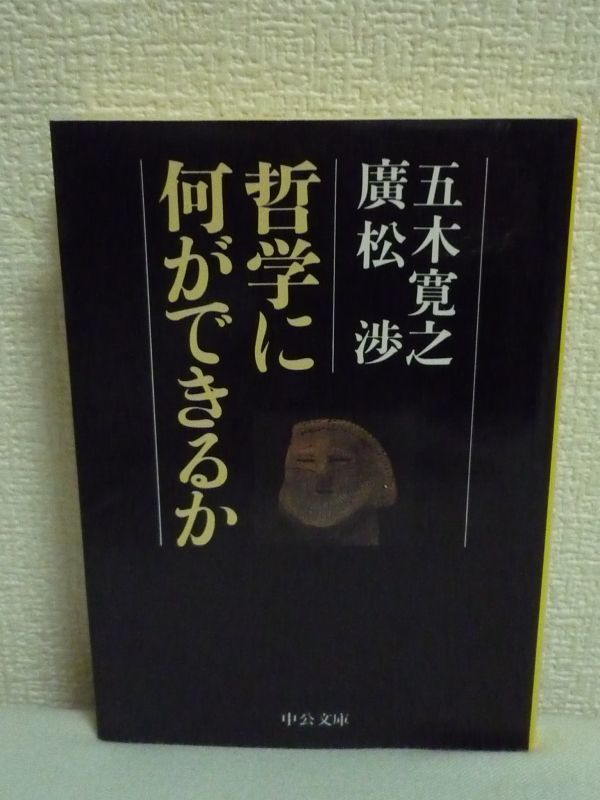 五木寛之
廣松 渉
哲学に
何ができるか
中公文庫